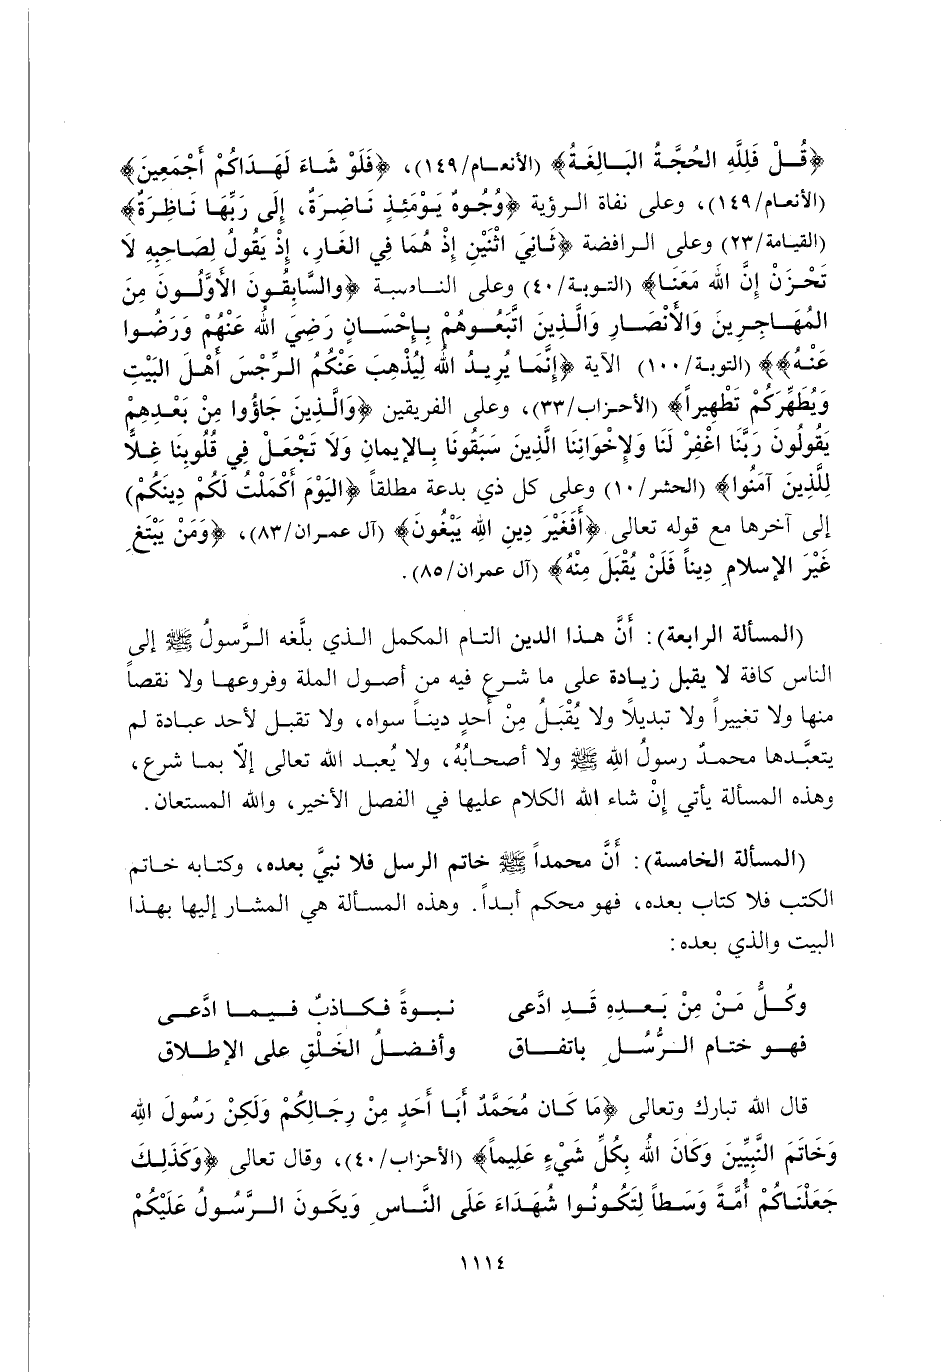 ﴿قُلْ فَلِلَّهِ الحُجَّةُ البَالِغَةُ﴾ (الأنعام/١٤٩)، ﴿فَلَوْ شَاءَ لَهَدَاكُمْ أَجْمَعِينَ﴾
(الأنعام/١٤٩)، وعلى نفاة الرؤية ﴿وُجُوهٌ يَوْمَئِذٍ نَاضِرَةٌ، إِلَى رَبِّهَا نَاظِرَةٌ﴾
(القيامة/٢٣) وعلى الرافضة ﴿ثَانِيَ اثْنَيْنِ إِذْ هُمَا فِي الغَارِ، إِذْ يَقُولُ لِصَاحِبِهِ لَا
تَحْزَنْ إِنَّ الله مَعَنَا﴾ (التوبة/٤٠) وعلى الناصبة ﴿والسَّابِقُونَ الأَوَّلُونَ مِنَ
المُهَاجِرِينَ وَالأَنْصَارِ وَالَّذِينَ اتَّبَعُوهُمْ بِإِحْسَانٍ رَضِيَ الله عَنْهُمْ وَرَضُوا
عَنْهُ﴾﴾ (التوبة/١٠٠) الآية ﴿إِنَّمَا يُرِيدُ الله لِيُذْهِبَ عَنْكُمُ الرِّجْسَ أَهْلَ البَيْتِ
وَيُطَهِّرَكُمْ تَطْهِيراً﴾ (الأحزاب/٣٣)، وعلى الفريقين ﴿وَالَّذِينَ جَاؤُوا مِنْ بَعْدِهِمْ
يَقُولُونَ رَبَّنَا اغْفِرْ لَنَا وَلِإخْوَانِنَا الَّذِينَ سَبَقُونَا بِالإيمانِ وَلَا تَجْعَلْ فِي قُلُوبِنَا غِلاًّ
لِلَّذِينَ آمَنُوا﴾ (الحشر/١٠) وعلى كل ذي بدعة مطلقاً ﴿اليَوْمَ أَكْمَلْتُ لَكُمْ دِينَكُمْ)
إلى آخرها مع قوله تعالى ﴿أَفَغَيْرَ دِينِ الله يَبْغُونَ﴾ (آل عمران/٨٣)، ﴿وَمَنْ يَبْتَغِ
غَيْرَ الإسلامِ دِيناً فَلَنْ يُقْبَلَ مِنْهُ﴾ (آل عمران/٨٥).
(المسألة الرابعة): أَنَّ هذا الدين التام المكمل الذي بلَّغه الرَّسولُ ﷺ إلى
الناس كافة لا يقبل زيادة على ما شرع فيه من أصول الملة وفروعها ولا نقصاً
منها ولا تغييراً ولا تبديلاً ولا يُقْبَلُ مِنْ أحدٍ ديناً سواه، ولا تقبل لأحد عبادة لم
يتعبَّدها محمدٌ رسولُ اللهِ ﷺ ولا أصحابُهُ، ولا يُعبد الله تعالى إلاّ بما شرع،
وهذه المسألة يأتي إنْ شاء الله الكلام عليها في الفصل الأخير، والله المستعان.
(المسألة الخامسة): أَنَّ محمداً ﷺ خاتم الرسل فلا نبيَّ بعده، وكتابه خاتم
الكتب فلا كتاب بعده، فهو محكم أبداً. وهذه المسألة هي المشار إليها بهذا
البيت والذي بعده:
وكُلُّ مَنْ مِنْ بَعدِهِ قَدِ ادَّعى نبوةً فكاذبٌ فيما ادَّعى
فهو ختام الرُّسُلِ باتفاق وأفضلُ الخَلْقِ على الإطلاق
قال الله تبارك وتعالى ﴿مَا كَان مُحَمَّدٌ أَبَا أَحَدٍ مِنْ رِجَالِكُمْ وَلَكِنْ رَسُولَ اللهِ
وَخَاتَمَ النَّبِيِّينَ وَكَانَ اللهُ بِكُلِّ شَيْءٍ عَلِيماً﴾ (الأحزاب/٤٠)، وقال تعالى ﴿وَكَذَلِكَ
جَعَلْنَاكُمْ أُمَّةً وَسَطاً لِتَكُونُوا شُهَدَاءَ عَلَى النَّاسِ وَيَكُونَ الرَّسُولُ عَلَيْكُمْ
١١١٤